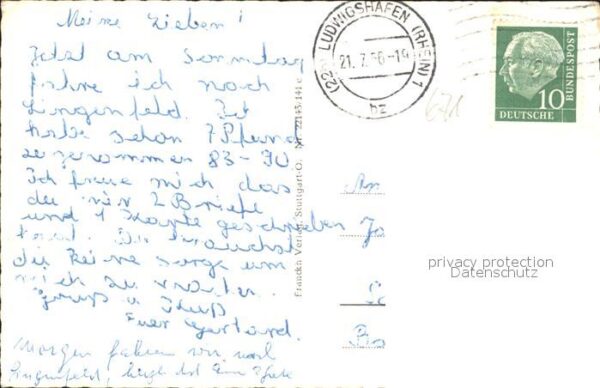 Meine Lieben!
Jetzt am Sonntag
fahre ich nach
Lingenfeld. Ich
habe schon 7 Pfund
zugenommen 83-90.
Ich freue mich das
du mir 2 Briefe
und 1 Karte geschrieben
hast. Du brauchst
dir keine sorge um
mich zu machen.
Gruß u Kuß
Euer
Morgen fahren wir nach
Lingenfeld, liegt ist am
Franckh Verlag, Stuttgart-O. Nr. 22145/141 c
(22b) LUDWIGSHAFEN (RHEIN) 1
21. 7. 56-19
bz
671
10
DEUTSCHE
BUNDESPOST
An
privacy protection
Datenschutz